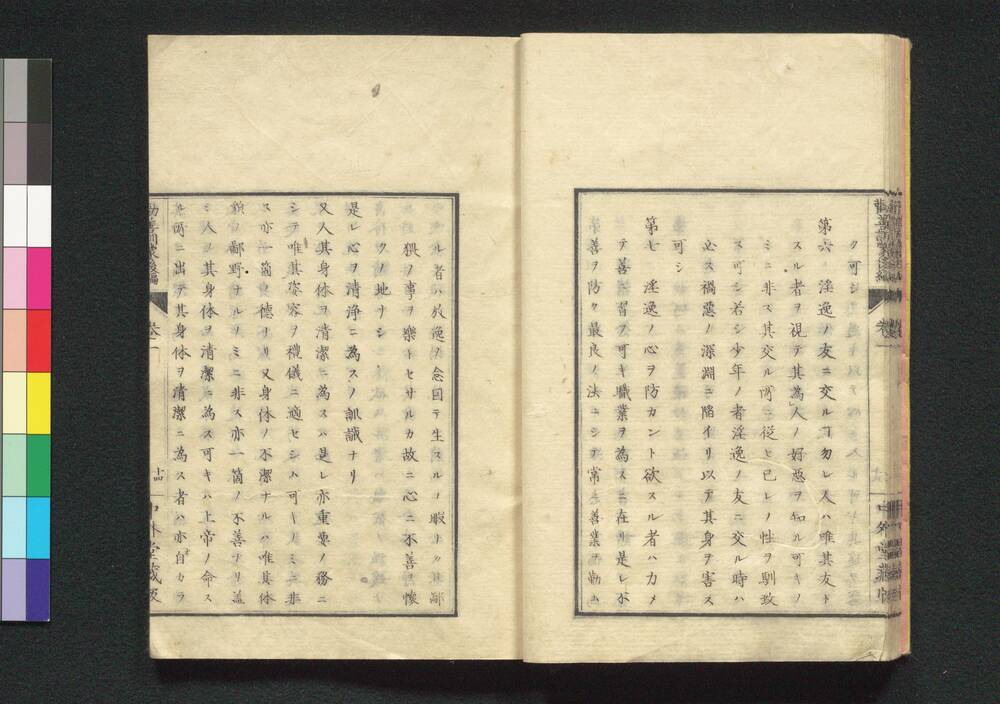 ク可シ
第六 淫逸ノ友ニ交ルヿ勿レ人ハ唯其友ト
スル者ヲ視テ其為人ノ好惡ヲ知ル可キノ
ミニ非ス其交ル所ニ從ヒ己レノ性ヲ馴致
ス可シ若シ少年ノ者淫逸ノ友ニ交ル時ハ
必ス禍惡ノ深淵ニ陥イリ以テ其身ヲ害ス
可シ
第七 淫逸ノ心ヲ防カント欲スル者ハカメ
テ善ク習フ可キ職業ヲ為スニ在リ是レ不
善ヲ防ク最良ノ法ニシテ常ニ善業ヲ勤ム
ル者ハ放逸ノ念因テ生スルノ暇ナク其鄙
猥ノ事ヲ樂トセサルカ故ニ心ニ不善ヲ懐
クノ地ナシ
是レ心ヲ清浄ニ為スノ訓誡ナリ
又人其身体ヲ清潔ニ為スハ是レ亦重要ノ務ニ
シテ唯其容ヲ禮儀ニ適セシム可キノミニ非
ス亦一箇ノ德ナリ又身体ノ不潔ナルハ唯其体
貌ノ鄙野ナルノミニ非ス亦一箇ノ不善ナリ蓋
シ人ノ其身体ヲ清潔ニ為ス可キハ上帝ノ命ス
ル所ニ出テ其身体ヲ清潔ニ為ス者ハ亦自カラ
勧善訓蒙後編 卷一 十四 中外堂蔵版